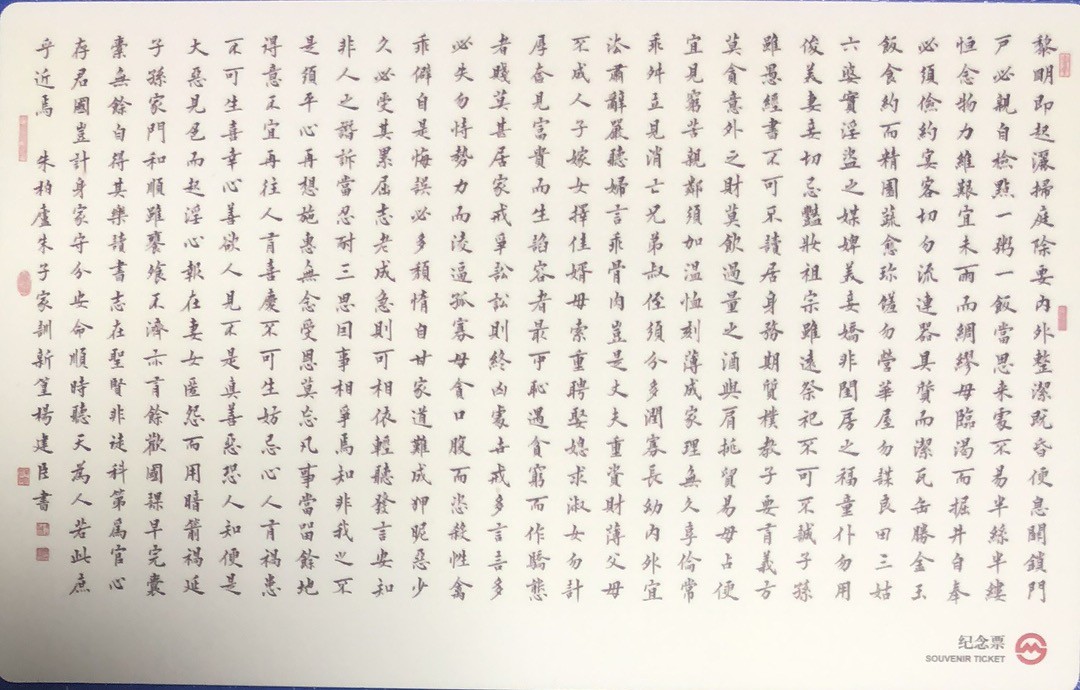 黎明即起灑掃庭除要內外整潔既昏便息關鎖門
戶必親自檢點一粥一飯當思来處不易半絲半縷
恒念物力維艱宜未雨而綢繆毋臨渴而掘井自奉
必須儉約宴客切勿流連器具質而潔瓦缶勝金玉
飯食約而精園蔬愈珍饈勿營華屋勿謀良田三姑
六婆實淫盜之媒婢美妾嬌非閨房之福童仆勿用
俊美妻妾切忌豔妝祖宗雖遠祭祀不可不誠子孫
雖愚經書不可不讀居身務期質樸教子要有義方
莫貪意外之財莫飲過量之酒與肩挑貿易毋占便
宜見窮苦親鄰須加温恤刻薄成家理無久享倫常
乖舛立見消亡兄弟叔侄須分多潤寡長幼內外宜
法肅辭嚴聽婦言乖骨肉豈是丈夫重資財薄父母
不成人子嫁女擇佳婿毋索重聘娶媳求淑女勿計
厚奩見富貴而生諂容者最可恥遇貧窮而作驕態
者賤莫甚居家戒爭訟訟則終凶處世戒多言言多
必失勿恃勢力而淩逼孤寡毋貪口腹而恣殺牲禽
乖僻自是悔誤必多頹惰自甘家道難成狎昵惡少
久必受其累屈志老成急則可相依輕聽發言安知
非人之譖訴當忍耐三思因事相爭焉知非我之不
是須平心再想施惠無念受恩莫忘凡事當留餘地
得意不宜再往人有喜慶不可生妒忌心人有禍患
不可生喜幸心善欲人見不是真善惡恐人知便是
大惡見色而起淫心報在妻女匿怨而用暗箭禍延
子孫家門和順雖饔飧不濟亦有餘歡國課早完囊
橐無餘自得其樂讀書志在聖賢非徒科第為官心
存君國豈計身家守分安命順時聽天為人若此庶
乎近焉 朱柏廬朱子家訓新篁楊建臣書
纪念票
SOUVENIR TICKET